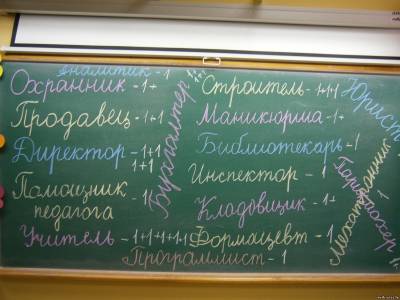 Аналитик - 1
Охранник - 1+
Продавец - 1+1
Директор - 1+1
1+1
Помощник - 1
педагога
Учитель - 1+1+1+1+1
Бухгалтер 1+
Строитель - 1+1+1
Маникюрша - 1+
Библиотекарь - 1
Инспектор - 1
Кладовщик - 1+
Формацевт - 1
Программист - 1
Юрист
Парикмахер 1
Механик